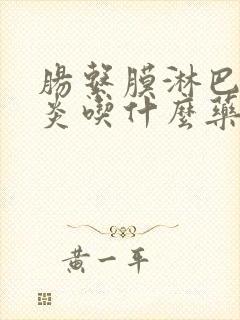 腸繫膜淋巴
炎喫什麼藥
黃一平